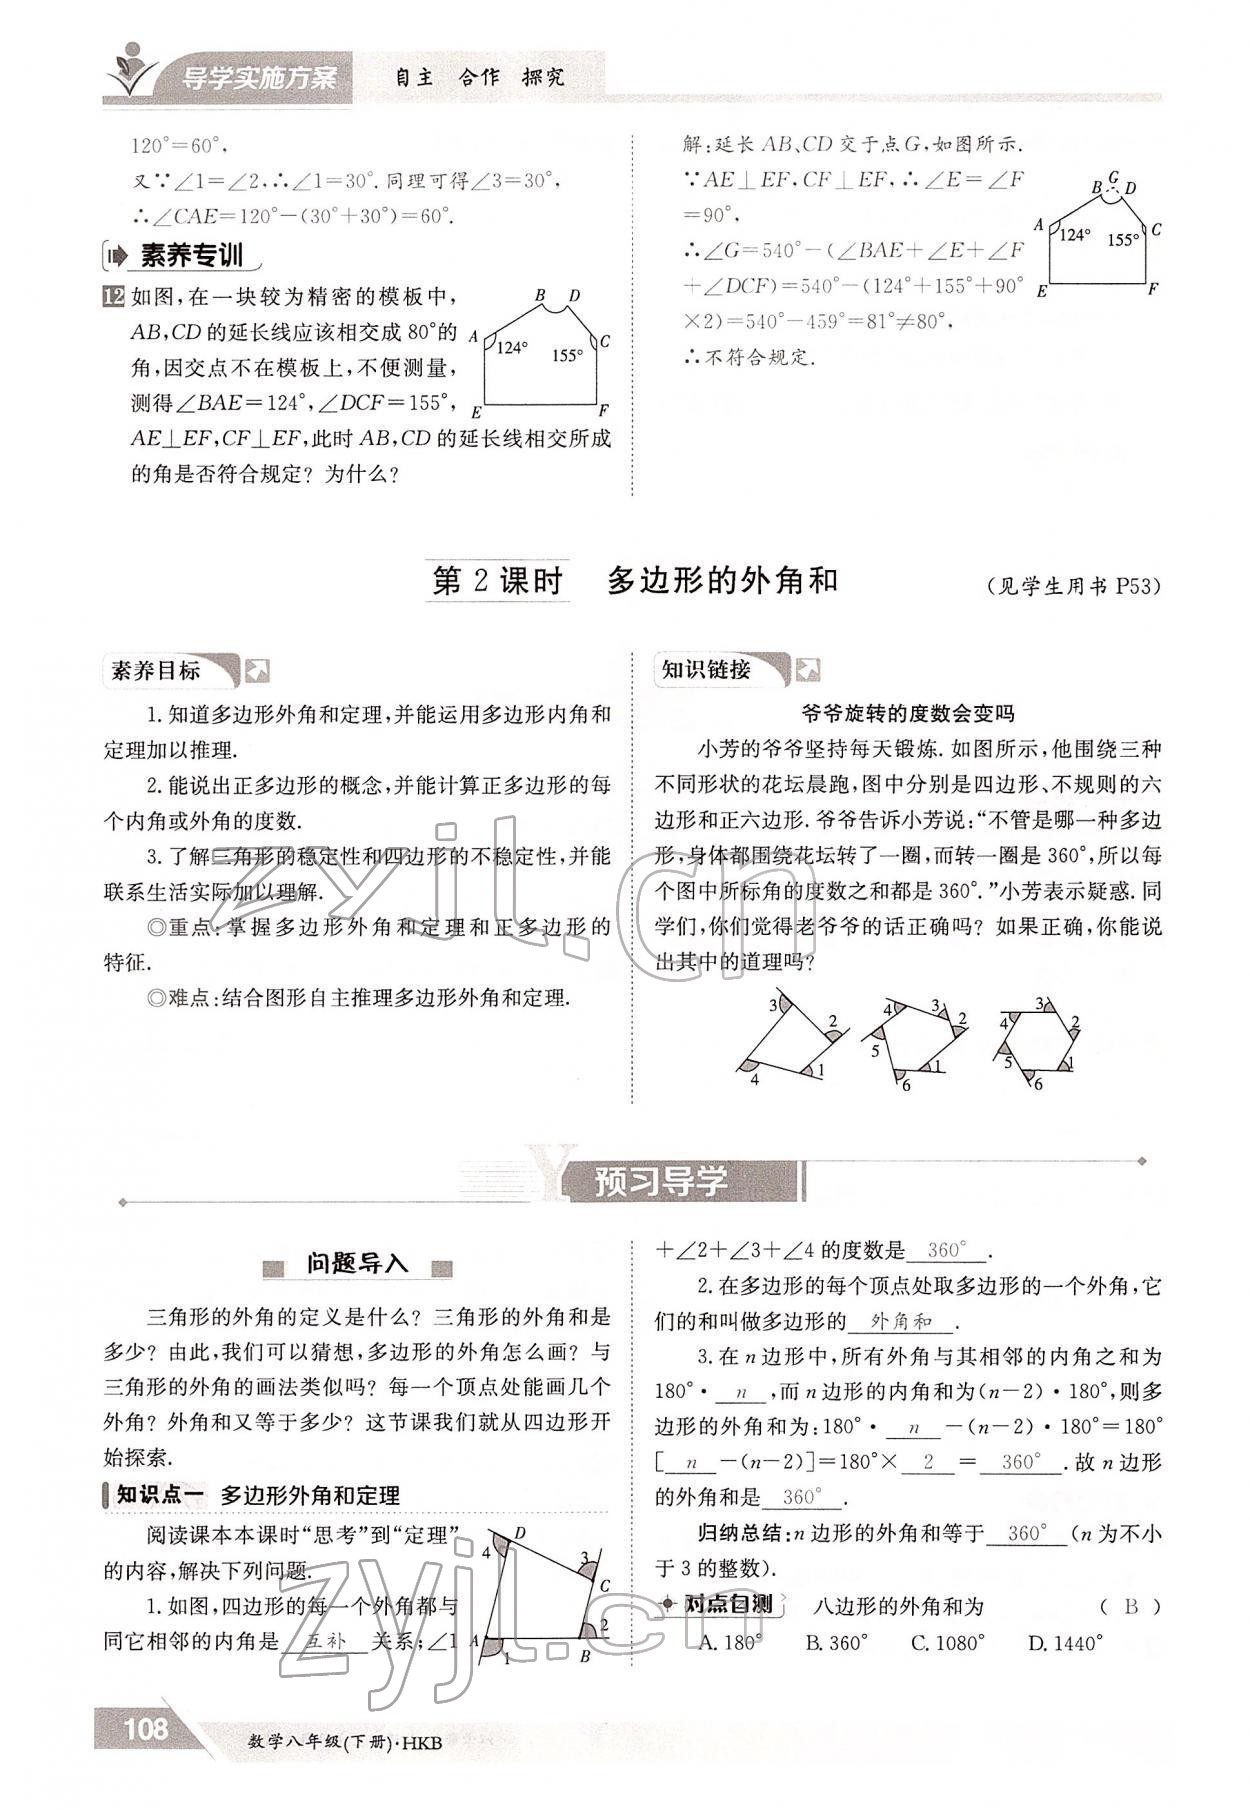 导学实施方案
自主 合作 探究
120°=60°,
又∵∠1=∠2,∴∠1=30°.同理可得∠3=30°,
∴∠CAE=120°-(30°+30°)=60°.
素养专训
12 如图,在一块较为精密的模板中,
AB,CD的延长线应该相交成80°的
角,因交点不在模板上,不便测量,
测得∠BAE=124°,∠DCF=155°,
AE⊥EF,CF⊥EF,此时AB,CD的延长线相交所成
的角是否符合规定?为什么?
B D
A C
124° 155°
E F
解:延长AB、CD交于点G,如图所示.
∵AE⊥EF,CF⊥EF,∴∠E=∠F
=90°,
∴∠G=540°-(∠BAE+∠E+∠F
+∠DCF)=540°-(124°+155°+90°
×2)=540°-459°=81°≠80°,
∴不符合规定.
G
B D
A C
124° 155°
E F
第2课时 多边形的外角和 (见学生用书P53)
素养目标
1.知道多边形外角和定理,并能运用多边形内角和
定理加以推理.
2.能说出正多边形的概念,并能计算正多边形的每
个内角或外角的度数.
3.了解三角形的稳定性和四边形的不稳定性,并能
联系生活实际加以理解.
◎重点:掌握多边形外角和定理和正多边形的
特征.
◎难点:结合图形自主推理多边形外角和定理.
知识链接
爷爷旋转的度数会变吗
小芳的爷爷坚持每天锻炼.如图所示,他围绕三种
不同形状的花坛晨跑,图中分别是四边形、不规则的六
边形和正六边形.爷爷告诉小芳说:“不管是哪一种多边
形,身体都围绕花坛转了一圈,而转一圈是360°,所以每
个图中所标角的度数之和都是360°.”小芳表示疑惑.同
学们,你们觉得老爷爷的话正确吗?如果正确,你能说
出其中的道理吗?
3 2 4 1
4 3 2 5 6 1
4 3 2 5 6 1
预习导学
问题导入
三角形的外角的定义是什么?三角形的外角和是
多少?由此,我们可以猜想,多边形的外角怎么画?与
三角形的外角的画法类似吗?每一个顶点处能画几个
外角?外角和又等于多少?这节课我们就从四边形开
始探索.
知识点一 多边形外角和定理
阅读课本本课时“思考”到“定理”
的内容,解决下列问题.
1.如图,四边形的每一个外角都与
同它相邻的内角是 互补 关系;∠1
D
4 3
C
2
A 1 B
+∠2+∠3+∠4的度数是 360° .
2.在多边形的每个顶点处取多边形的一个外角,它
们的和叫做多边形的 外角和 .
3.在n边形中,所有外角与其相邻的内角之和为
180°· n ,而n边形的内角和为(n-2)·180°,则多
边形的外角和为:180°· n -(n-2)·180°=180°
[ n -(n-2)]=180°× 2 = 360° .故n边形
的外角和是 360° .
归纳总结:n边形的外角和等于 360° (n为不小
于3的整数).
对点自测 八边形的外角和为 ( B )
A.180° B.360° C.1080° D.1440°
zyjl.cn
zyjl.cn
108
数学八年级(下册)·HKB